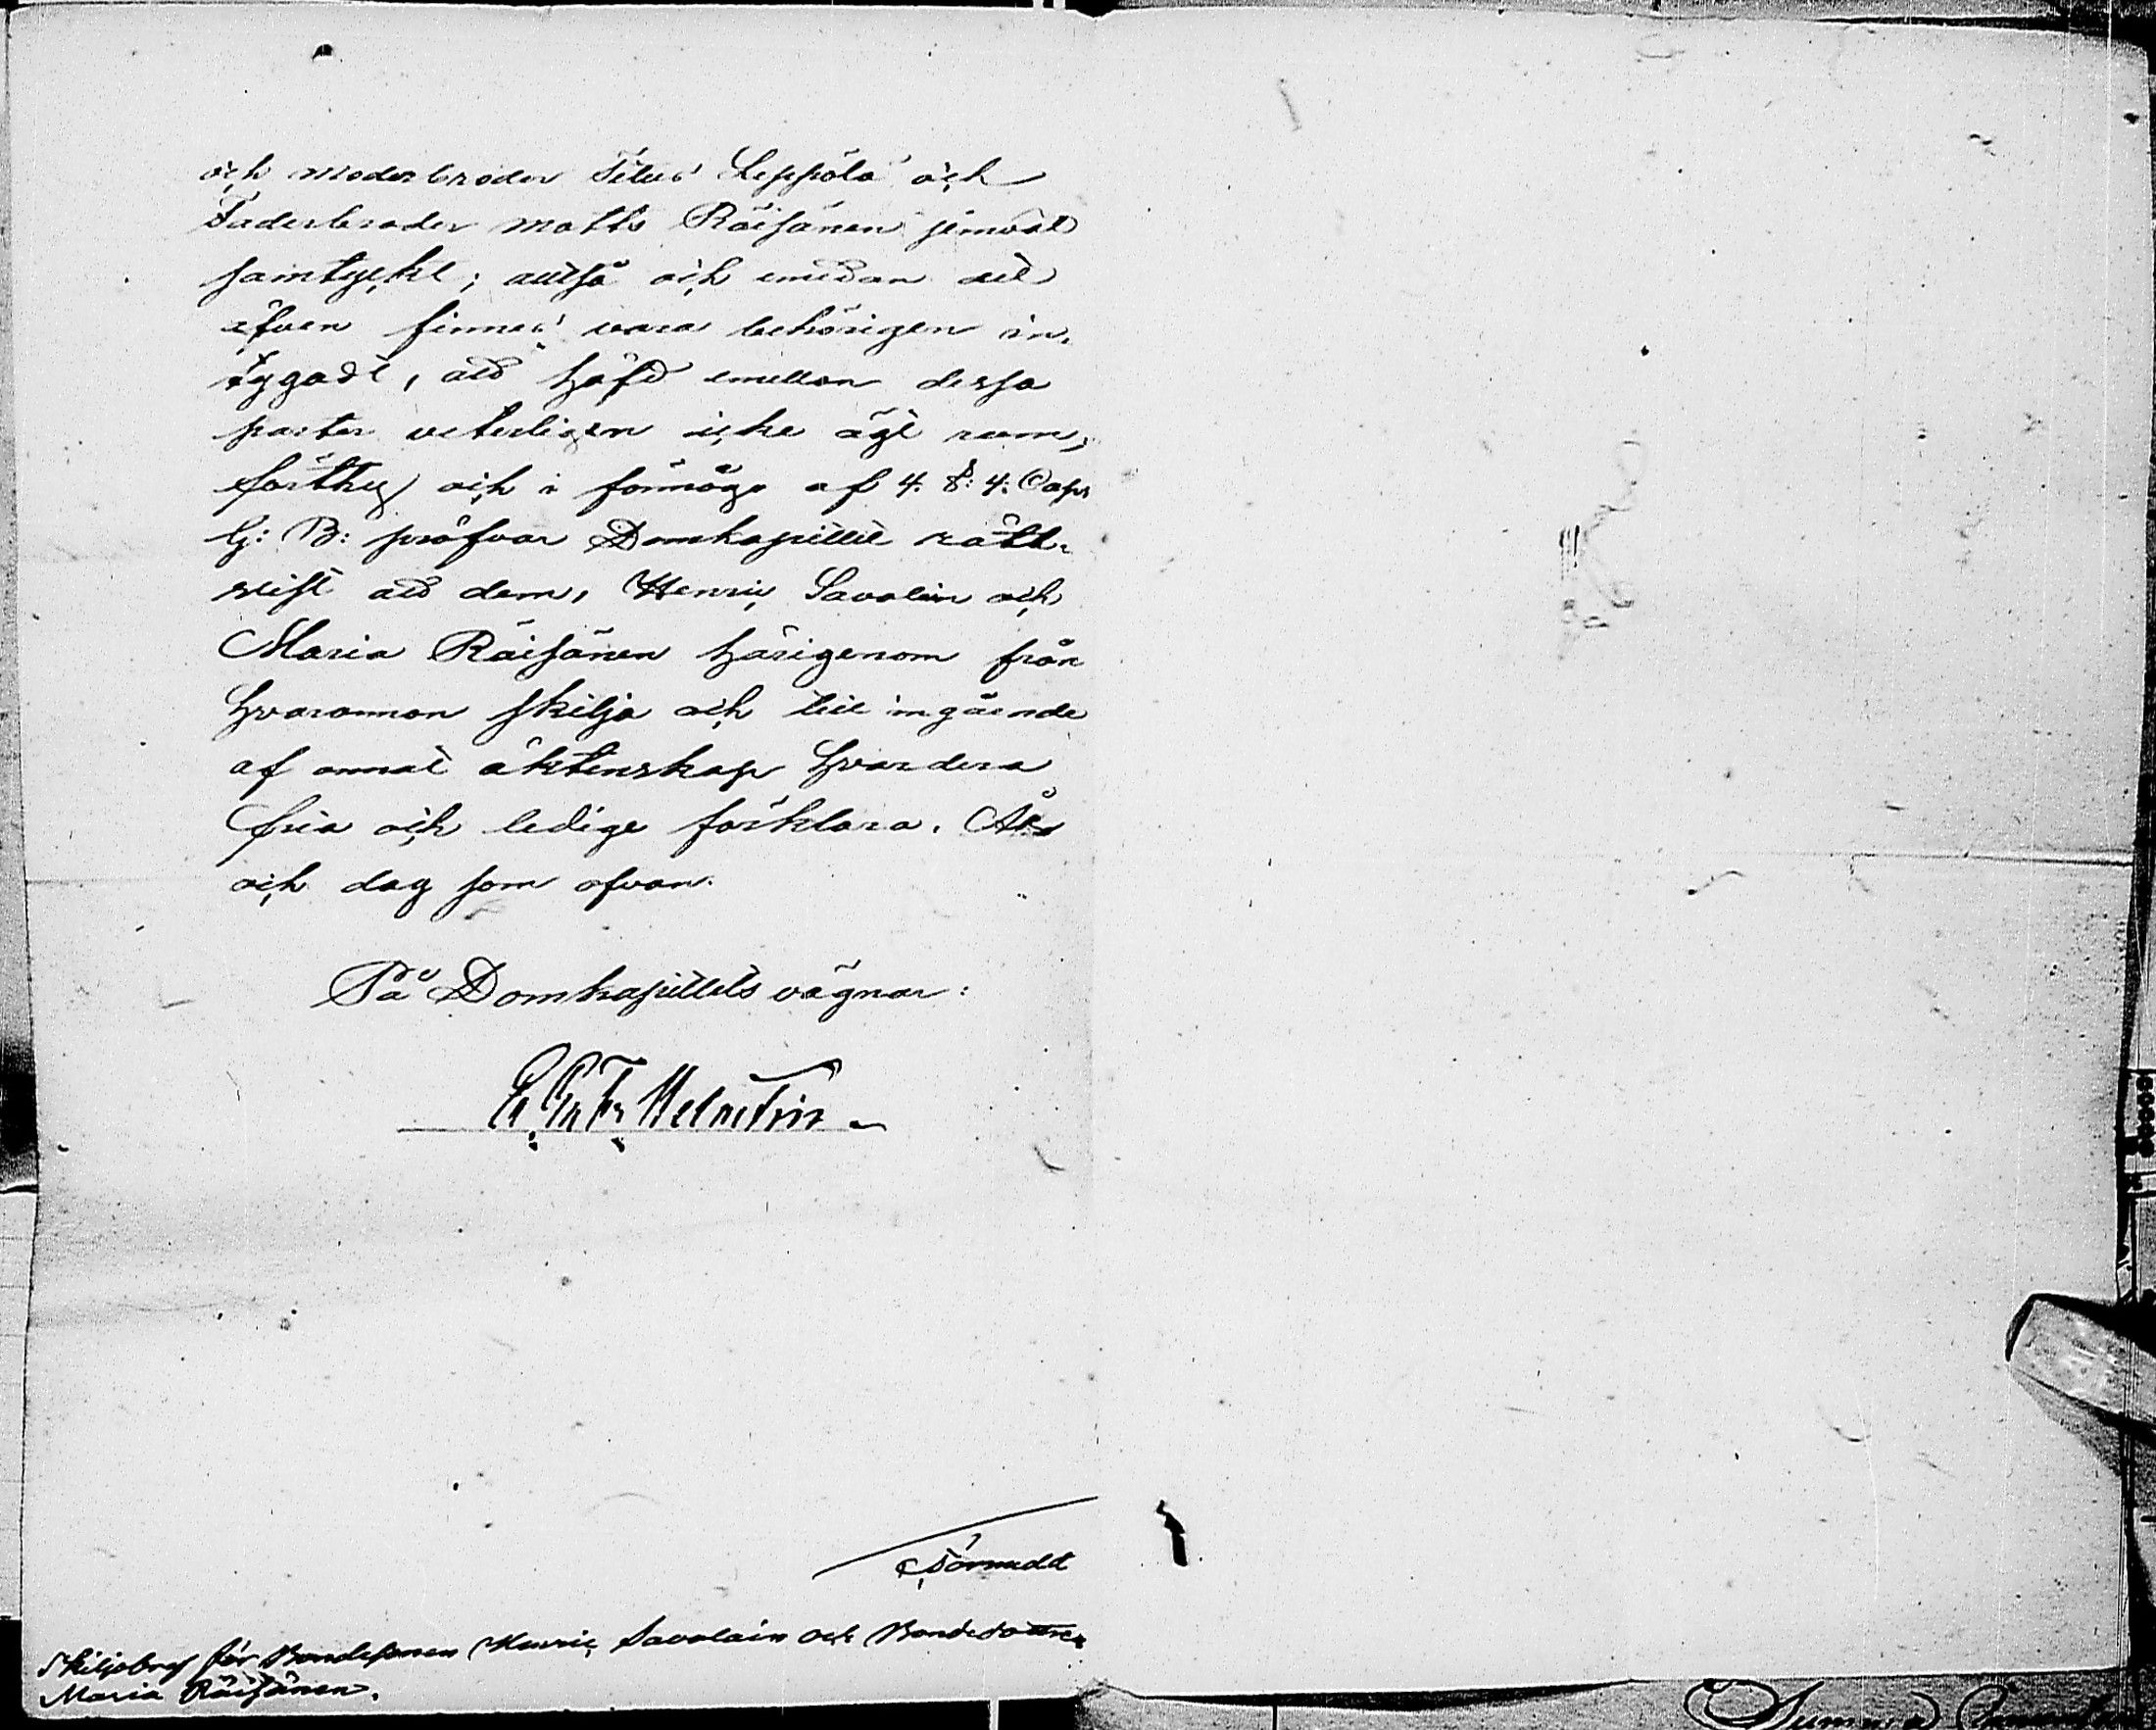 och moderbroder Titus Leppälä och
Faderbroder Matts Räisänen jemväl
samtyckt; alltså och emedan det
äfven finnes vara behörigen in-
tygadt, att häfd emellan dessa
parter veterligen icke ägt rum,
förthy och i förmågo af 4. §: 4: Cap.
G: B: pröfvar Domkapitlet rätt-
vist att dem, Henric Savolain och
Maria Räisänen härigenom från
hvarannan skilja och till ingående
af annat äktenskap hvardera
fria och ledige förklara. År
och dag som ofvan.
På Domkapitlets vägnar:
Törnudd
Skiljobref för Bondesonen Henric Savolain och Bondedottren
Maria Räisänen.
Summa